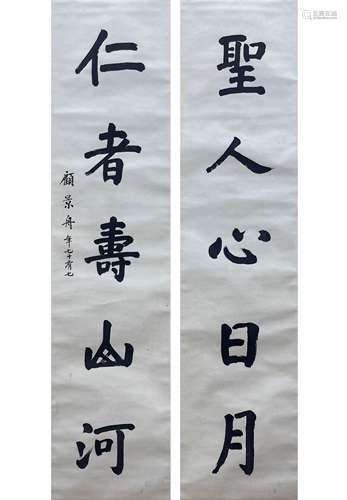 聖人心日月
仁者壽山河
顧景舟年七十有七